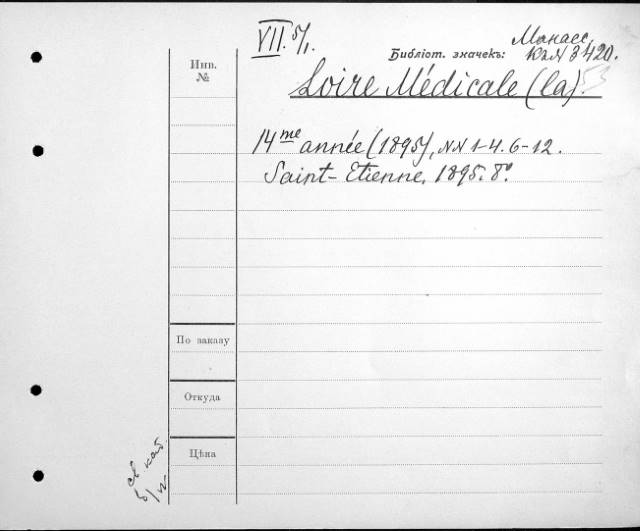 VII. 5/1.
Манасс.
Библіот. значекъ: Кол 3420.
Инв.
№
Loire Médicale (la). 53
14me année (1895), NN 1-4. 6-12.
Saint-Etienne, 1895. 8º.
По заказу
Откуда
Цѣна